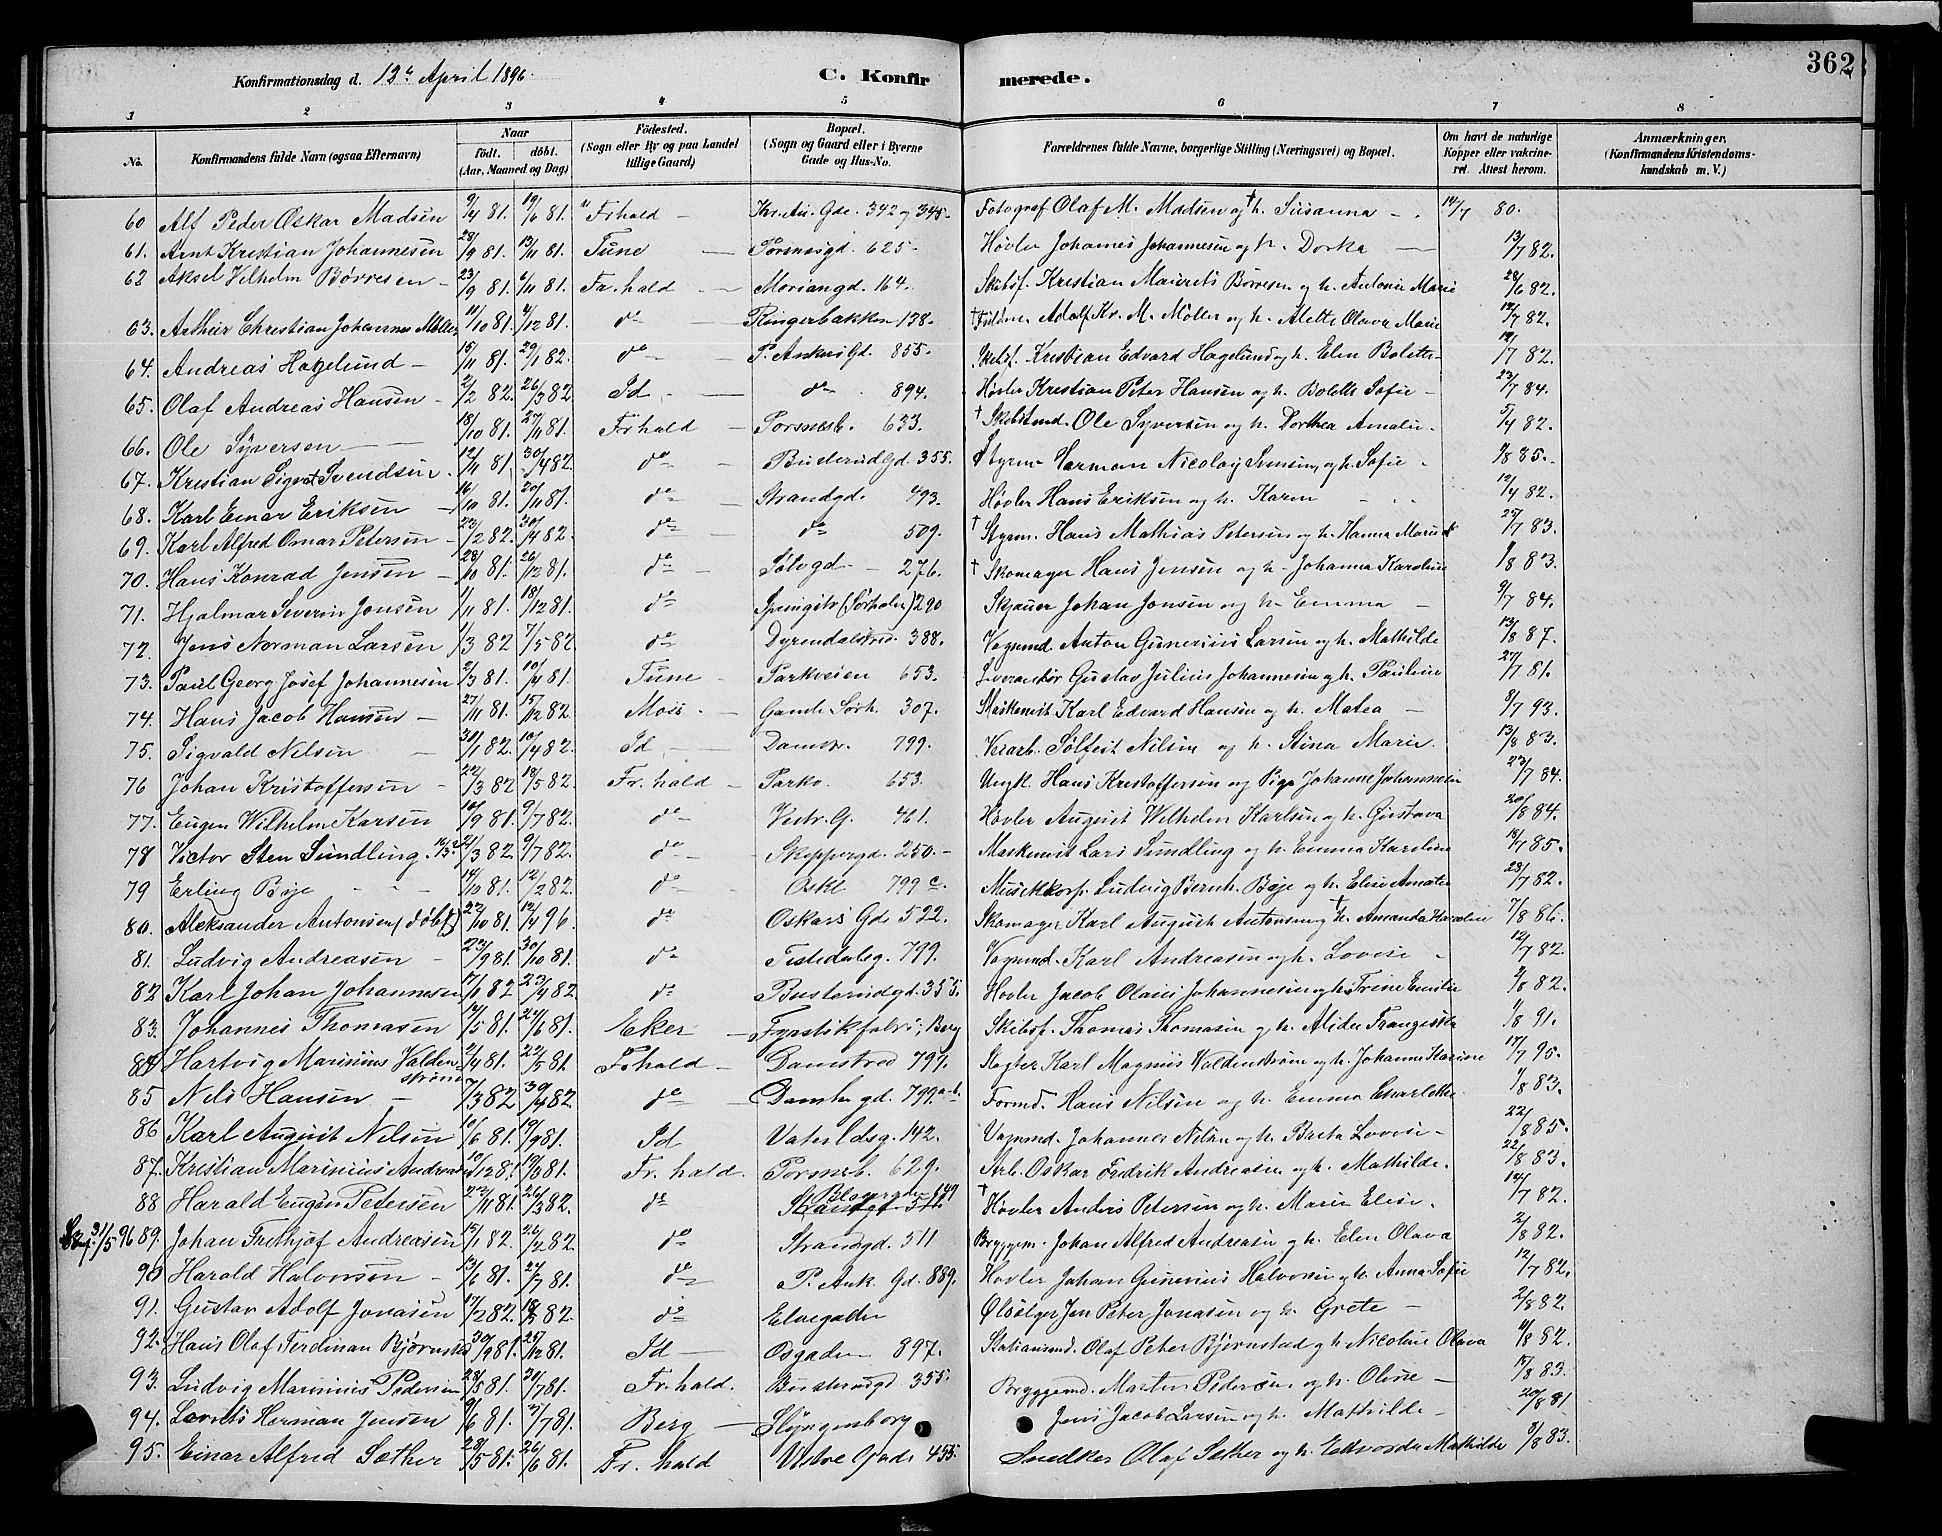 362
Konfirmationsdag d. 12te April 1896.
C. Konfirmerede.
1 2 3 4 5 6 7 8
No. Konfirmandens fulde Navn (ogsaa Efternavn) Naar født. døbt. (Aar, Maaned og Dag) Fødested. (Sogn eller By og paa Landet tillige Gaard) Bopæl. (Sogn og Gaard eller i Byerne Gade og Hus-No. Forældrenes fulde Navne, borgerlige Stilling (Næringsvei) og Bopæl. Om havt de naturlige Kopper eller vakcineret. Attest herom. Anmærkninger, (Konfirmandens Kristendomskundskab m. V.)
60 Alf Peder Oskar Madsen 9/4 81. 19/6 81. Frhald - Kr. Au. Gde. 342 og 345 Fotograf Olaf M. Madsen og † h. Susanna - 14/7 80.
61. Arnt Kristian Johannesen 28/9 81. 13/11 81. Tune Porsnesgd. 625 Høvler Johanes Johannesen og h. Dorka 13/7 82.
62 Aksel Vilhelm Børresen 23/9 81. 6/11 81. Fr.hald Moriangd. 164. Skibsf. Kristian Mauritz Børresen og h. Antonie Marie 28/6 82.
63. Arthur Christian Johannes Møller 11/10 81. 4/12 81. do Ringerbakken 138. † Fuldm. Adolf Kr. M. Møller og h. Alette Olava Marie 12/7 82.
64. Andreas Hagelund 15/11 81. 29/1 82. do P. Ankers Gd. 855. Skibsf. Kristian Edvard Hagelund og h. Elen Bolette 12/7 82.
65. Olaf Andreas Hansen 2/2 82. 26/3 82 Id do 894. Høvler Kristian Peter Hansen og h. Bolette Sofie 23/7 84.
66. Ole Syversen 18/10 81. 27/11 81. Frhald Porsnesb. 633. † Ole Syversen og h. Dorthea Amalie 5/4 82.
67. Kristian Sigvat Svendsen 12/11 81. 30/4 82. do Busterud Gd. 355. Styrm. Herman Nicolay Svensen og h. Sofie /8 85.
68. Karl Einar Eriksen 16/10 81. 20/11 81. do Strandgd. 493. Høvler Hans Eriksen og h. Karen 12/4 82.
69. Karl Alfred Omar Petersen 23/2 82. 20/4 82. do do 509. † Styrm. Hans Mathias Petersen og h. Hanna 25/7 83.
70. Hans Konrad Jensen 28/10 81. 26/12 81. do Sølvgd. 276. † Skomager Hans Jensen og h. Johanna Karoline /8 83.
71. Hjalmar Severin Jonsen 1/11 81. 18/12 81. do (Sørhalv) 290 Skjauer Johan Jonsen og h. Emma 9/7 84.
72. Jens Norman Larsen 1/3 82 7/5 82 do Dyrendalsved. 388. Vognmd. Anton Gunerius Larsen og h. Mathilde 13/8 87.
73. Paul Georg Josef Johannesen 2/3 81. 10/4 81. Tune Parkveien 653. Leverandør Gustav Julius Johannesen og h. Pauline 27/7 81.
74. Hans Jacob Hansen 27/11 81. 15/12 82. Moss. Gamle Sørh. 307. Maskenist Karl Edvard Hansen og h. Matea 8/7 93.
75. Sigvald Nilsen 31/1 82. 10/4 82. Id Damstr. 799. Nilsen og h. Stina Marie. 13/8 83.
76 Johan Kristoffersen 22/3 82 18/5 82. Fr.hald Parkv. 653. Ungk. Hans Kristoffersen og Pige Johanne Johannesen 23/7 84.
77. Eugen Wilhelm Karsen 10/9 81. 9/7 82. do Vestr. G. 461. Høvler August Wilhelm Karlsen og h. Gustava 20/8 84.
78 Victor Sten Sundling. 21/3 82. 9/7 82. do Skippergd. 250. Maskenist Lars Sundling og h. Emma Karoline 18/7 85.
79 Erling Bøje 14/10 81. 12/2 82. do Oskl. 799 c. Musikkorp. Ludvig Bernh. Bøje og h. Elise Amalie 28/7 82.
80. Aleksander Antonsen (døbt) 22/10 81. 12/4 96. do Oskars Gd. 522. Skomager Karl August Antonsen og † h. Amanda Karoline 7/8 86.
81. Ludvig Andreasen 23/9 81. 30/10 81. do Tistedalsg. 799. Vognmd. Karl Andreasen og h. Lovise 12/7 82.
82 Karl Johan Johannesen 17/1 82 23/4 82. do Busterudgd. 355. Høvler Jacob Olaus Johannesen og h. Trine Emilie /8 82.
83. Johannes Thomasen 14/5 81. 24/6 81. Eker Fyrstikfabr., Berg Skibsf. Thomas Thomasen og h. Alide Frangiska 1/8 91.
84 Hartvig Marinius Valdenstrøm 2/4 81. 22/5 81. Frhald Damstred 797. Slagter Karl Magnus Valdenstrøm og h. Johanne Karine 17/7 95.
85 Nils Hansen 7/3 82 30/4 82. do 799. a-b. Formd. Hans Nilsen og h. Emma Charlotte 1/8 83.
86 Karl August Nilsen 10/6 81. 19/9 81. Id Vaterldsg. 142. Vognmd. Johannes Nilsen og h. Brita Lovise 22/8 85.
87. Kristian Marinius 10/12 81 Fr.hald. Porsnesb. 629. Arb. Oskar Fredrik Andreasen og h. Mathilde. 22/8 83.
88 Harald Eugen Petersen 23/11 81. 26/3 82. do 149 † Høvler Anders Petersen og h. Marie Elise. 14/7 82.
31/5 96 89. Johan Frithjof Andreasen 15/1 82. 26/2 82. do Strandgd. 511 Bryggem. Johan Alfred Andreasen og h. Elen Olava 2/8 82.
90 Harald Halvorsen 13/6 81. 24/7 81. do P. Ank. Gd. 889. Høvler Johan Gunerius Halvorsen og h. Anna Sofie 12/7 82.
91. Gustav Adolf Jonasen 17/2 82. 18/5 82 do Elvegaden Ølsælger Jon Peter Jonasen og h. Grete 2/8 82.
92. Hans Olaf Ferdinan Bjørnstad 30/9 81. 25/12 81. Id Osgaden 897. Stationsmd. Olaf Peter Bjørnstad og h. Nicoline Olava 11/8 82.
93. Ludvig Marinius Pedersen 28/5 81. 20/7 81. Fr.hald. Busterudgd 355. Bryggemd. Martin Pedersen og h. Olise 15/8 83.
94. Lovits Herman Jensen 9/6 81. 3/7 81. Berg Slyngenborg Jens Jacob Larsen og h. Mathilde 20/8 81
95. Einar Alfred Sæther 28/5 81. 26/6 81. Fr.hald Vestre Gade 455. Snedker Olaf Sæther og h. Edvarda Mathilde 3/8 83.